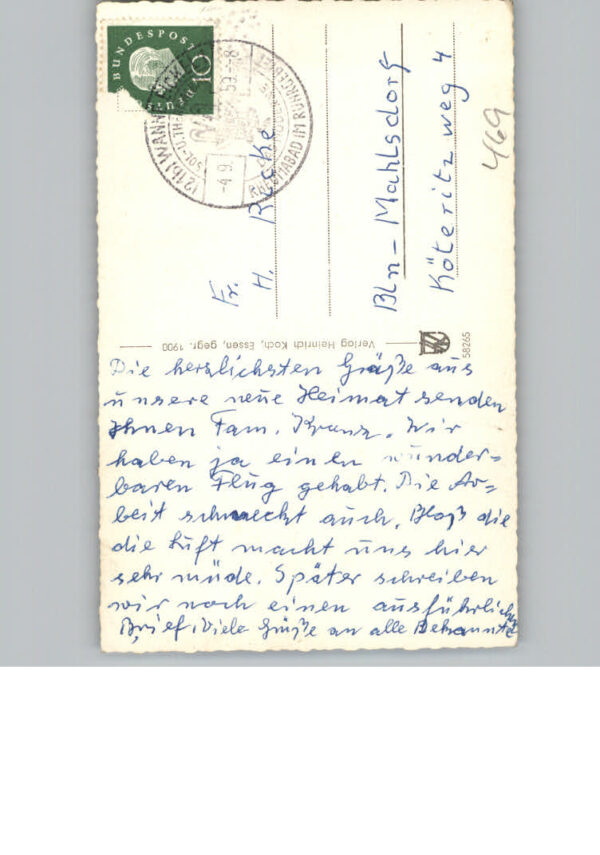 BUNDESPOST
10
-4.9. 59.-8
RHEUMABAD IM RUHRGEBIET
Fr.
H.
Bln - Mahlsdorf
Köteritzweg 4
469
Verlag Heinrich Koch, Essen, gegr. 1900
58265
Die herzlichsten Grüße aus
unsere neue Heimat senden
Ihnen Fam. Kranz. Wir
haben ja einen wunder=
baren Flug gehabt. Die Ar=
beit schmeckt auch. Bloß die
die Luft macht uns hier
sehr müde. Später schreiben
wir noch einen ausführlich
Brief. Viele Grüße an alle Bekannte